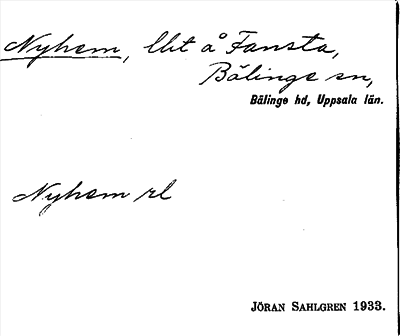 Nyhem, lht å Fansta,
Bälinge sn,
Bälinge hd, Uppsala län.
Nyhem rl
JÖRAN SAHLGREN 1933.